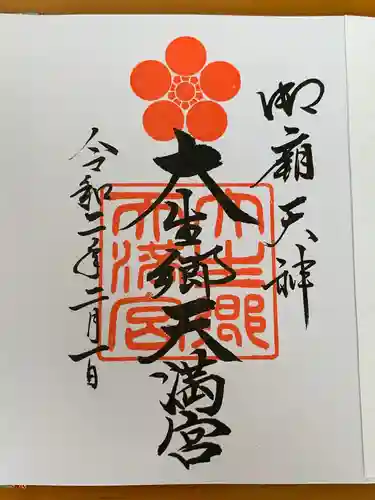 御廟天神
大生郷天満宮
令和二年二月一日
大生郷天満宮